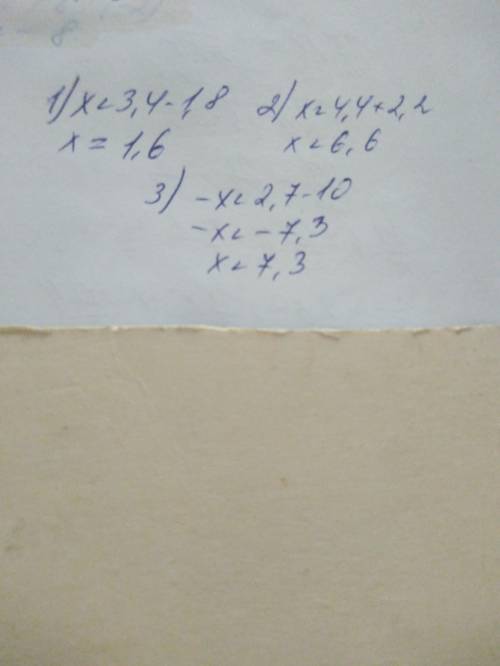 1) x = 3,4 - 1,8
x = 1,6
2) x = 4,4 + 2,2
x = 6,6
3) -x = 2,7 - 10
-x = -7,3
x = 7,3